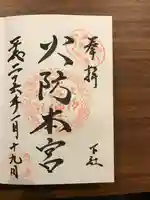 奉拝 下社
火防本宮
平成二十六年一月十九日